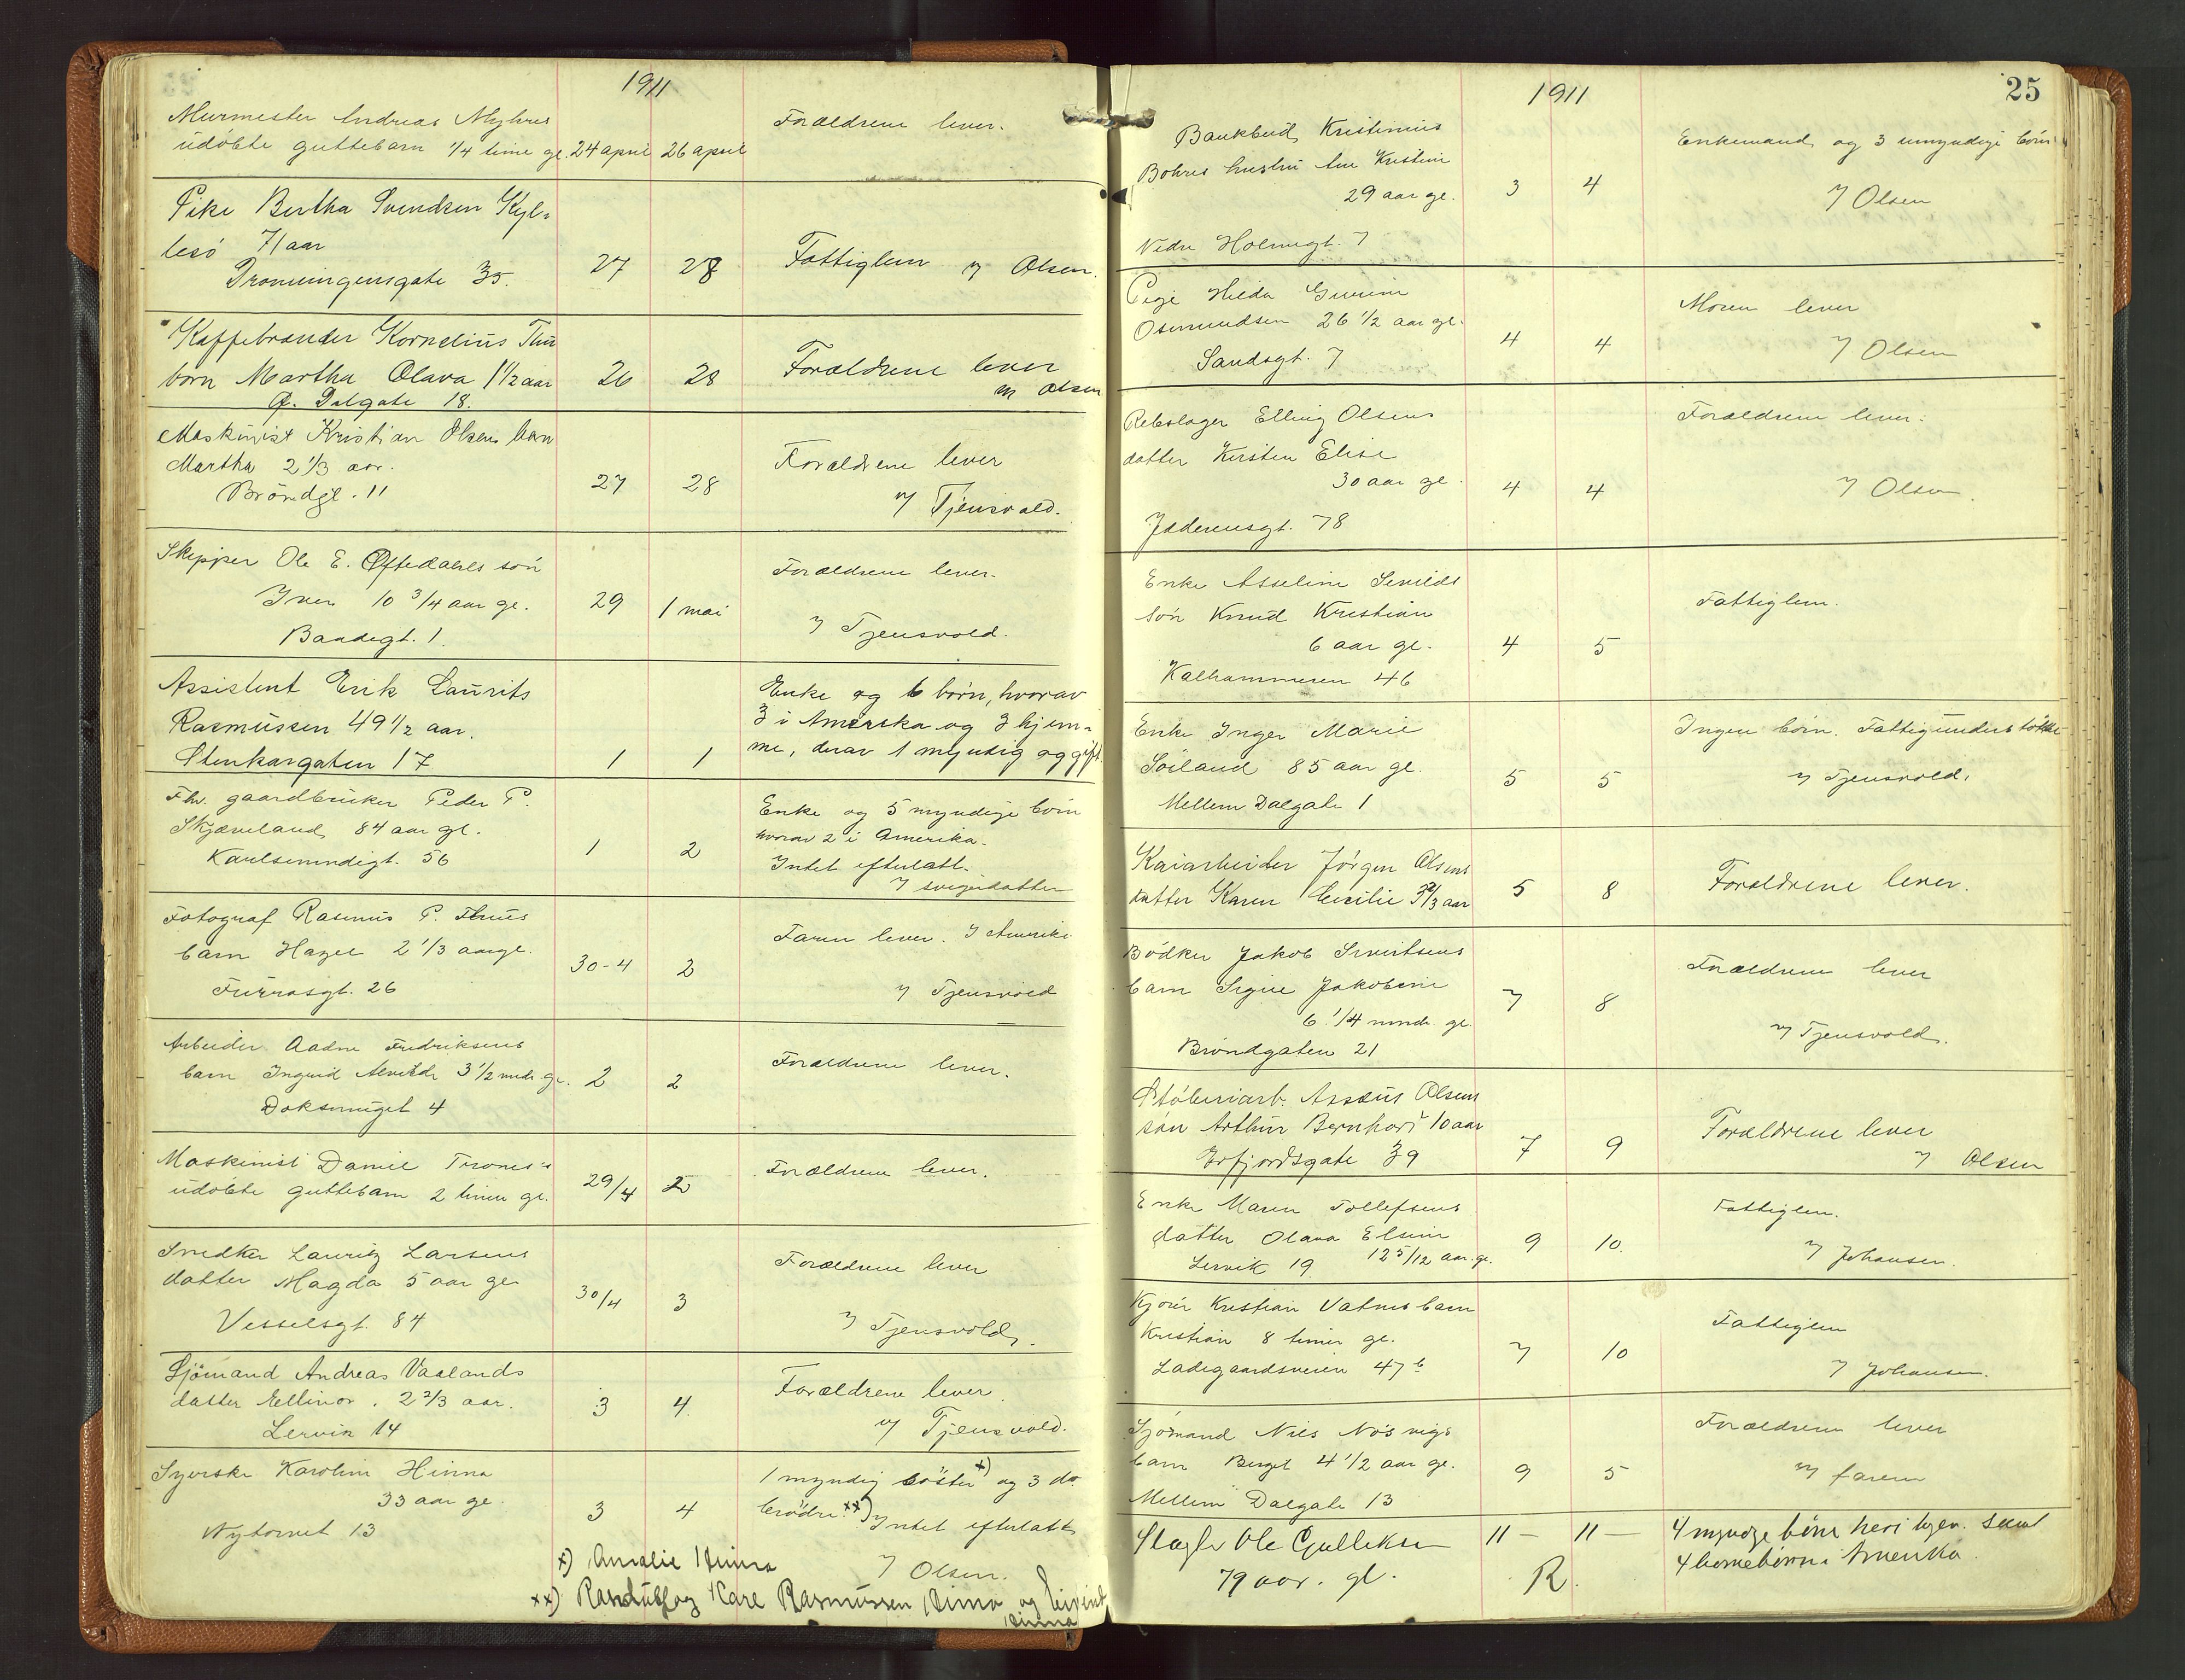 1911
Murmester Andreas Myhres
udöbte guttebarn 1/4 time gl. 24 april 26 april
Forældrene lever.
Pike Bertha Svendsen Kyl-
lesö 71 aar
Dronningensgate 35. 27 28
Fattiglem v/ Olsen.
Kaffebrænder Kornelius
barn Martha Olava 1 1/2 aar 26 28
Ø. Dalgate 18.
Forældrene lever
v/ Olsen
Maskinist Kristian Olsens barn
Martha 2 1/3 aar.
Bröndgt. 11 27 28
Forældrene lever
v/ Tjensvold.
Skipper Ole E. Oftedahls sön
Iver 10 3/4 aar gl. 29 1 mai
Bandegt. 1.
Forældrene lever.
v/ Tjensvold.
Assistent Erik Laurits
Rasmussen 49 1/2 aar.
Stenkargaten 17 1 1
Enke og 6 börn, hvorav
3 i Amerika og 3 hjem-
me, derav 1 myndig og gift
Fhv. gaardbruker Peder P.
Skjæveland 84 aar gl.
Karlsemndigt. 56 1 2
Enke og 5 myndige börn
hvorav 2 i Amerika.
Intet efterlatt.
v/ svigerdatter
Fotograf Rasmus P. Thues
barn Hazel 2 1/3 aar gl.
Furrasgt. 26 30-4 2
Faren lever. I Amerika
v/ Tjensvold
Arbeider Aadne Fredriksens
barn Ingrid Alvilde 3 1/2 mdr. gl. 2 2
Doksmuget 4
Forældrene lever.
Maskinist Daniel Trones's
udöbte guttebarn 2 timer gl. 29/4 2
Forældrene lever.
Snedker Lauritz Larsens
datter Magda 5 aar gl 30/4 3
Vesselsgt. 84
Forældrene lever
v/ Tjensvold.
Sjömand Andreas Vaalands
datter Ellinor. 2 2/3 aar. 3 4.
Lervik 14
Forældrene lever.
v/ Tjensvold.
Syerske Karoline Hinna
33 aar gl. 3 4
Nytorvet 13
1 myndig söster x) og 3 do
brödre. xx) Intet efterlatt
v/ Olsen.
x) Amalie Hinna
xx) Karl Rasmussen Hinna og Eivind
Hinna
25
1911
Bankbud Kristinius
Bohres hustru Ane Kristine
29 aar gl. 3 4
Nedre Holmegt. 7
Enkemand og 3 umyndige börn
v/ Olsen
Pige Hilda Gurine
Osmundsen 26 1/2 aar gl. 4 4
Sandsgt. 7
Moren lever
v/ Olsen
Rebslager Elling Olsens
datter Kirsten Elise
30 aar gl. 4 4
Jæderensgt. 78
Forældrene lever.
v/ Olsen.
Enke Asseline Sevilds
sön Knud Kristian
6 aar gl. 4 5
Kalhammeren 46
Fattiglem.
Enke Inger Marie
Söiland 85 aar gl. 5 5
Mellem Dalgate 1
Ingen börn. Fattigunderstöttet
v/ Tjensvold.
Kaiarbeider Jörgen Olsens
datter Karen Cecilie aar 5 8
Forældrene lever.
Bödker Jakob Sivertsens
barn Signe Jakobine
6 1/4 mndr. gl. 7 8
Bröndgaten 21
Forældrene lever
v/ Tjensvold.
Stöberiarb. Olsens
sön Arthur Bernhard 10 aar
Erfjordsgate 39 7 9
Forældrene lever
v/ Olsen
Enke Maren Tollefsens
datter Olava Elsine
Lervik 19. 12 5/12 aar. gl. 9 10.
Fattiglem.
v/ Johansen.
Kjörer Kristian Vatnes barn
Kristian 8 timer gl.
Ladegaardsveien 47 b 7 10
Fattiglem
v/ Johansen.
Sjömand Nils Nösvigs
barn Berget 4 1/2 aar gl. 9 5
Mellem Dalgate 13
Forældrene lever
v/ faren
Slagter Ole Gulleksen 11 - 11 -
79 aar. gl. R.
4 myndge börn her i byen. Samt
4 börnebörn i Amerika.